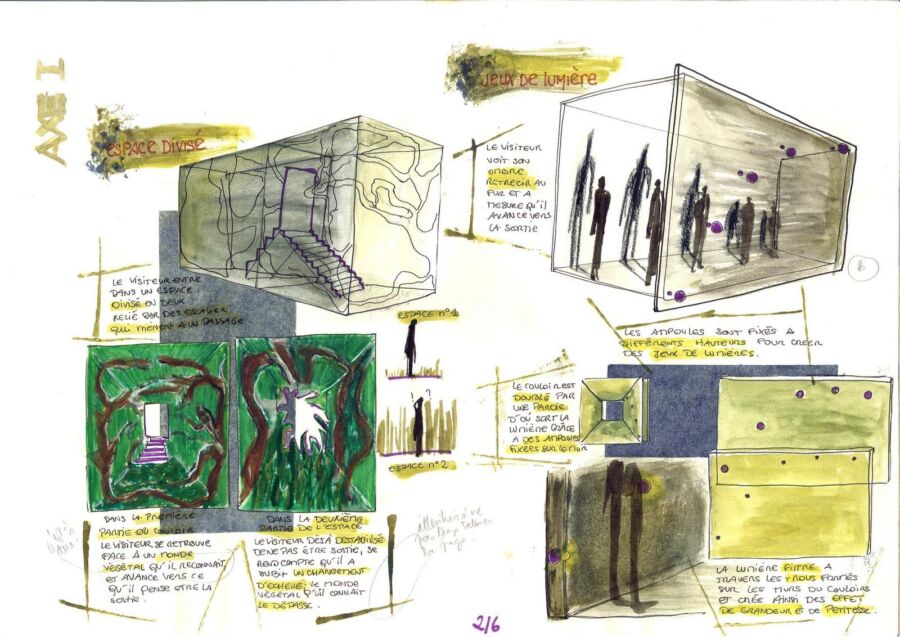 AXE I
ESPACE DIVISÉ
LE VISITEUR ENTRE
DANS UN ESPACE
DIVISÉ EN DEUX
RELIÉ PAR DES ESCALIER
QUI MÈNENT A UN PASSAGE
ESPACE N°1
ESPACE N°2
DANS LA PREMIÈRE
PARTIE DU COULOIR
LE VISITEUR SE RETROUVE
FACE À UN MONDE
VÉGÉTAL QU'IL RECONNAIT,
ET AVANCE VERS CE
QU'IL PENSE ETRE LA
SORTIE.
DANS LA DEUXIÈME
PARTIE DE L'ESPACE
LE VISITEUR DÉJÀ DESTABILISÉ
DE NE PAS ÊTRE SORTIE, SE
REND COMPTE QU'IL A
SUBIT UN CHANGEMENT
D'ECHELLE; LE MONDE
VÉGÉTAL QU'IL CONNAIT
LE DÉPASSE.
attention à ne
pas trop
la page.
JEUX DE LUMIÈRE
LE VISITEUR
VOIT SON
OMBRE
RETRECIR AU
FUR ET A
MESURE QU'IL
AVANCE VERS
LA SORTIE
b
LES AMPOULES SONT FIXÉS A
DIFFÉRENTS HAUTEURS POUR CRÉER
DES JEUX DE LUMIÈRES.
LE COULOIR EST
DOUBLÉ PAR
UNE PAROIE
D'OÙ SORT LA
LUMIÈRE GRÂCE
A DES AMPOULES
FIXÉES SUR LE MUR
LA LUMIÈRE FILTRE A
TRAVERS LES TROUS FORMÉS
SUR LES MURS DU COULOIRS
ET CRÉE AINSI DES EFFET
DE GRANDEUR ET DE PETITESSE.
2/6